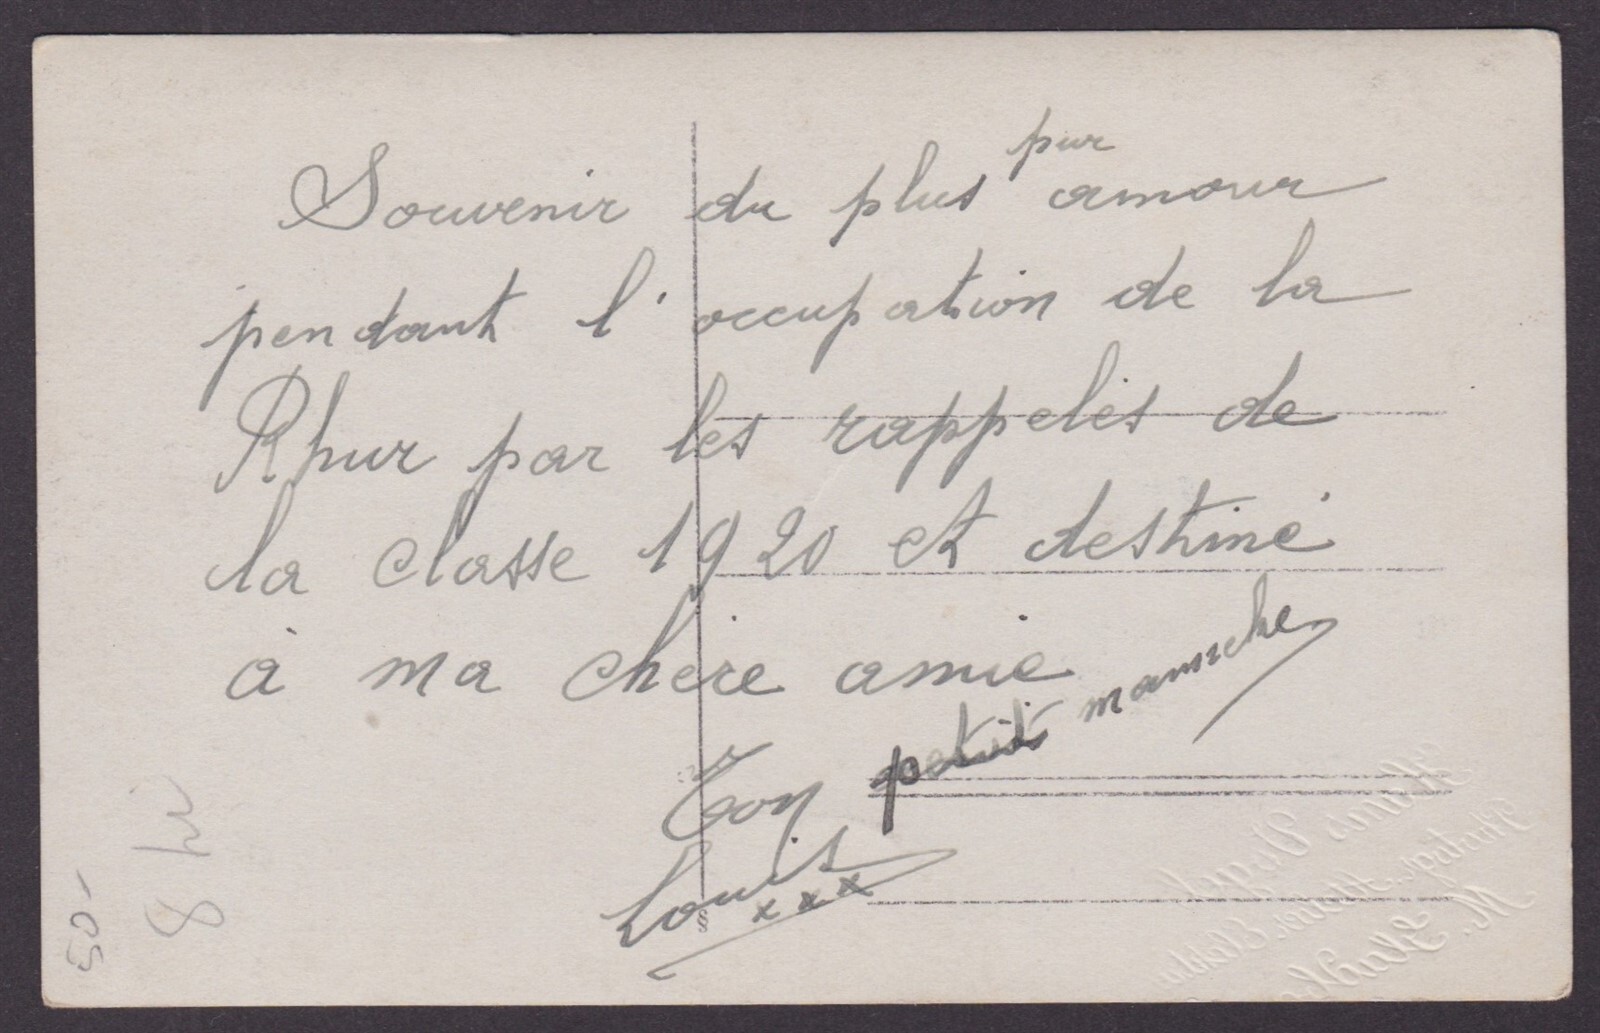 Souvenir du plus pur amour
pendant l'occupation de la
Rhur par les rappelés de
la classe 1920 et destiné
à ma chère amie
Ton petit
Louis
x x x
8
50-